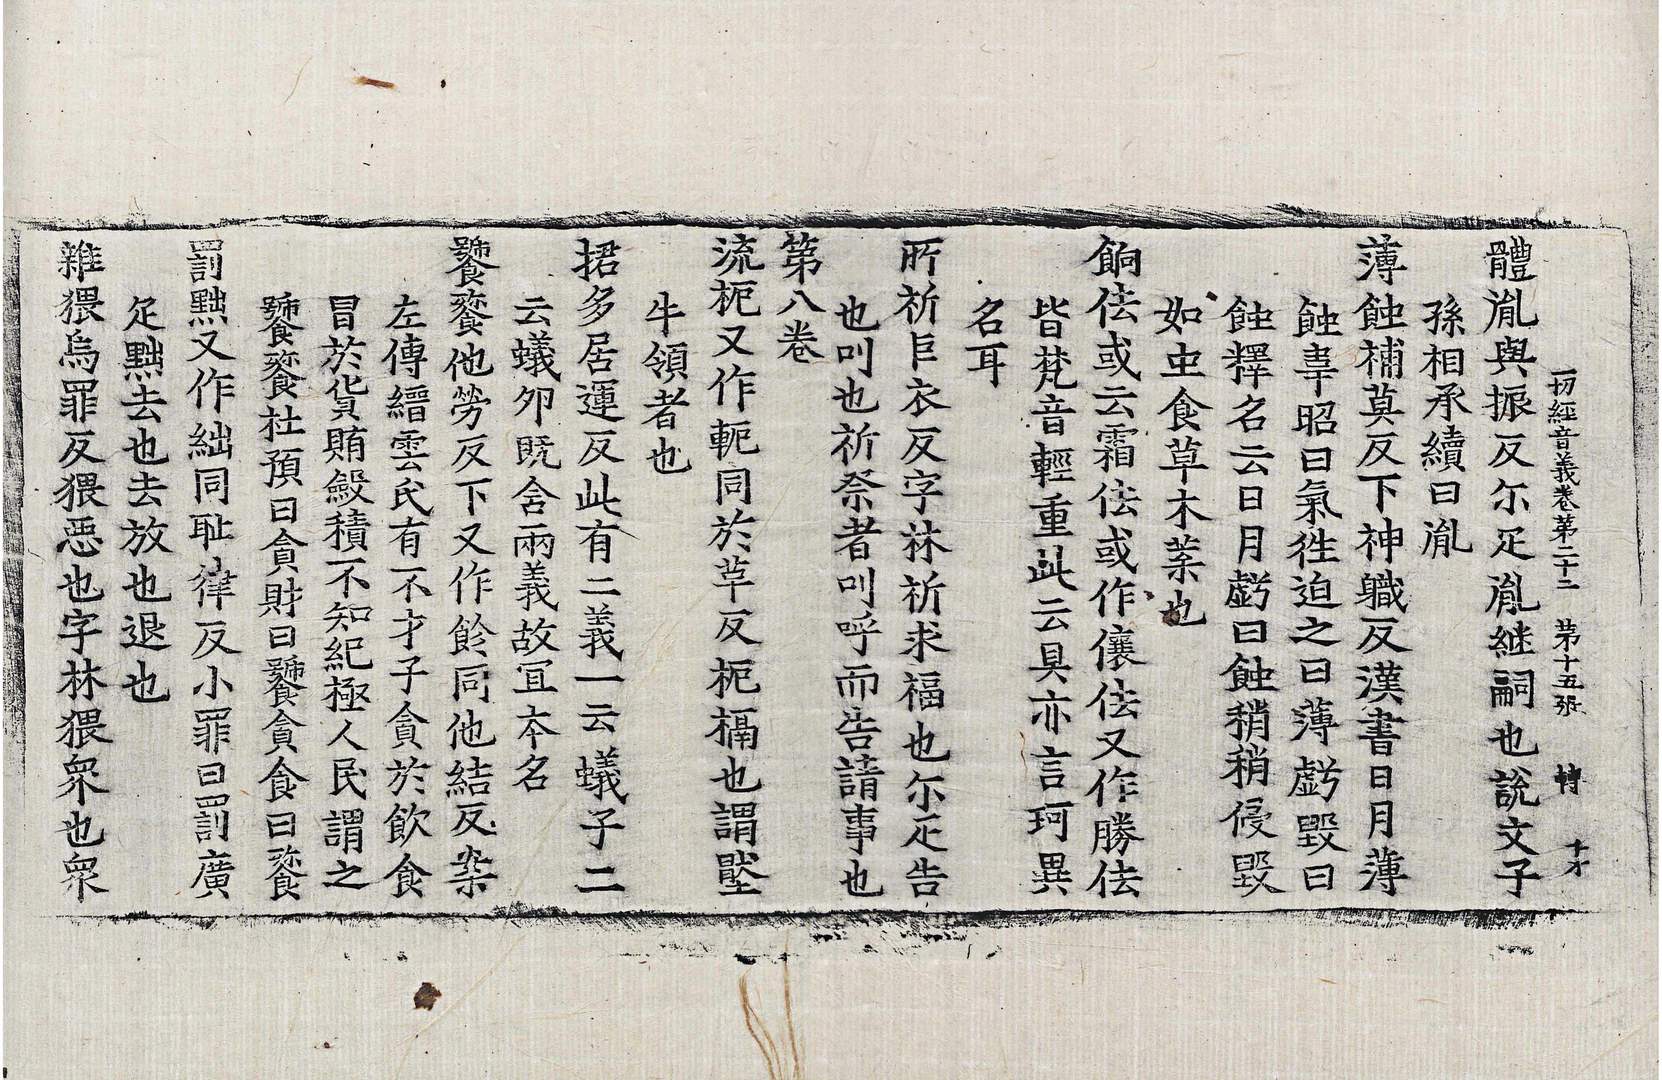 一切經音義卷第二十二 第十五張 特 十才
體胤與振反尒疋胤継嗣也說文子
孫相承續曰胤
薄蝕補莫反下神職反漢書日月薄
蝕韋昭曰氣徃迫之曰薄虧毀曰
蝕釋名云日月虧曰蝕稍稍侵毀
如虫食草木葉也
餉佉或云霜佉或作儴佉又作勝佉
皆梵音輕重此云具亦言珂異
名耳
所祈巨衣反字林祈求福也尒疋告
也叫也祈祭者叫呼而告請事也
第八卷
流枙又作軶同於革反枙槅也謂壓
牛領者也
捃多居運反此有二義一云蟻子二
云蟻夘既含兩義故冝本名
饕餮他勞反下又作飻同他結反案
左傳縉雲氏有不才子貪於飲食
冒於貨賄斂積不知紀極人民謂之
饕餮社預曰貪財曰饕貪食曰餮
罰黜又作絀同耻律反小罪曰罰廣
疋黜去也去放也退也
雜猥烏罪反猥惡也字林猥衆也衆